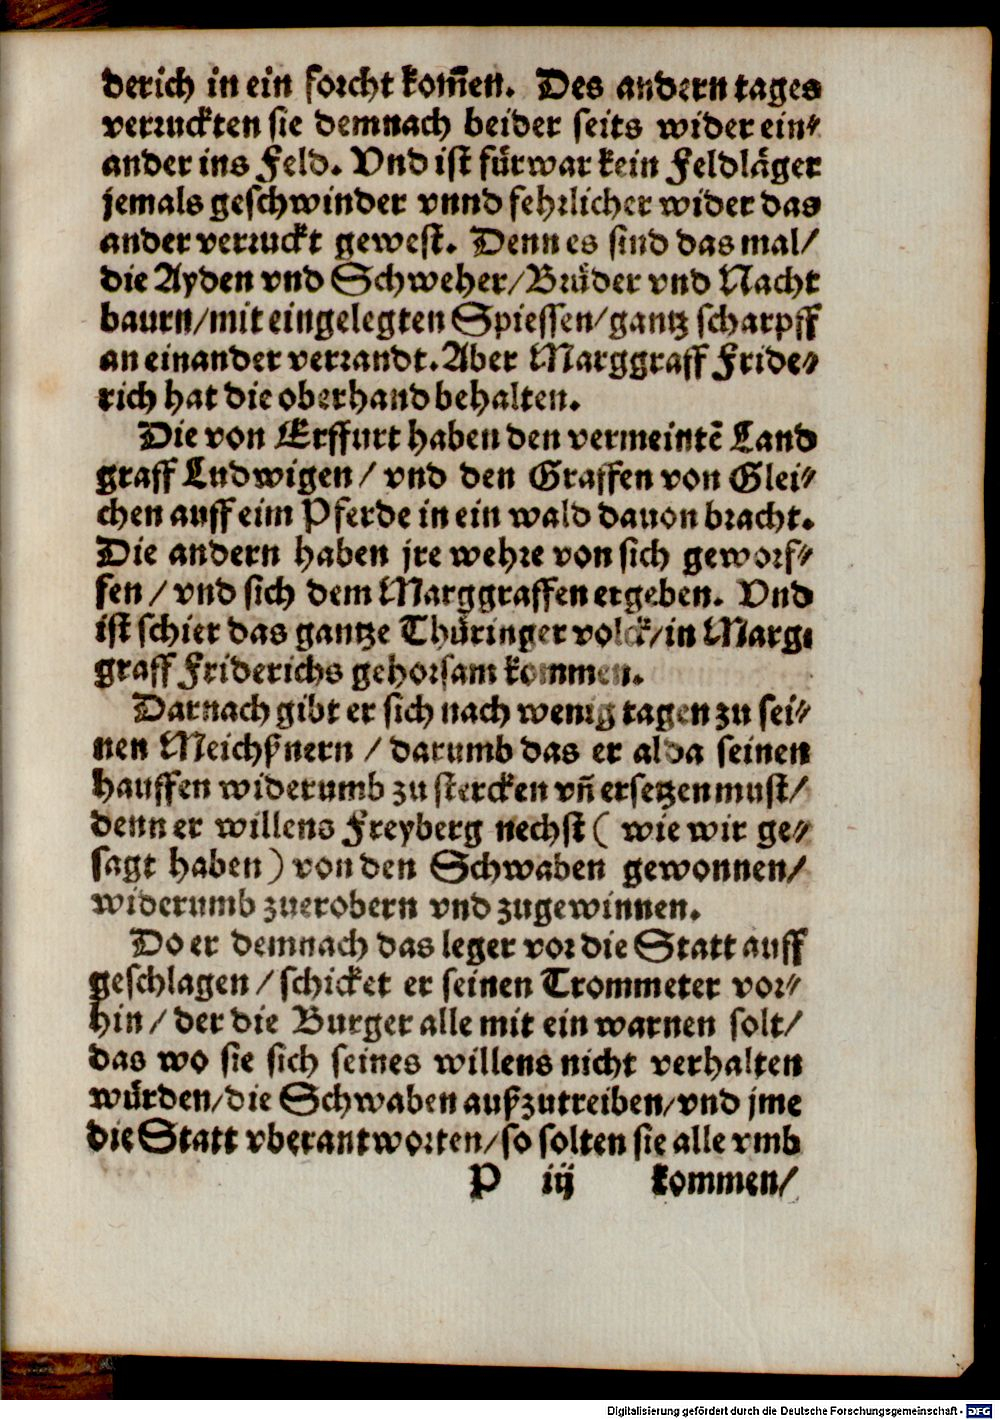 derich in ein forcht kom̃en. Des andern tages
verruckten sie demnach beider seits wider ein⸗
ander ins Feld. Vnd ist fürwar kein Feldläger
jemals geschwinder vnnd fehrlicher wider das
ander verruckt gewest. Denn es sind das mal/
die Ayden vnd Schweher/Brüder vnd Nacht
baurn/mit eingelegten Spiessen/gantz scharpff
an einander verrandt. Aber Marggraff Fride⸗
rich hat die oberhand behalten.
Die von Erffurt haben den vermeintẽ Land
graff Ludwigen/ vnd den Graffen von Glei⸗
chen auff eim Pferde in ein wald dauon bracht.
Die andern haben jre wehre von sich geworf⸗
fen / vnd sich dem Marggraffen ergeben. Vnd
ist schier das gantze Thüringer volck/in Marg⸗
graff Friderichs gehorsam kommen.
Darnach gibt er sich nach wenig tagen zu sei⸗
nen Meichßnern / darumb das er alda seinen
hauffen widerumb zu stercken vñ ersetzen must/
denn er willens Freyberg nechst ( wie wir ge⸗
sagt haben ) von den Schwaben gewonnen/
widerumb zuerobern vnd zugewinnen.
Do er demnach das leger vor die Statt auff
geschlagen / schicket er seinen Trommeter vor⸗
hin/ der die Burger alle mit ein warnen solt/
das wo sie sich seines willens nicht verhalten
würden/die Schwaben außzutreiben/vnd jme
die Statt vberantworten/so solten sie alle vmb
P iij kommen/
Digitalisierung gefördert durch die Deutsche Forschungsgemeinschaft - DFG